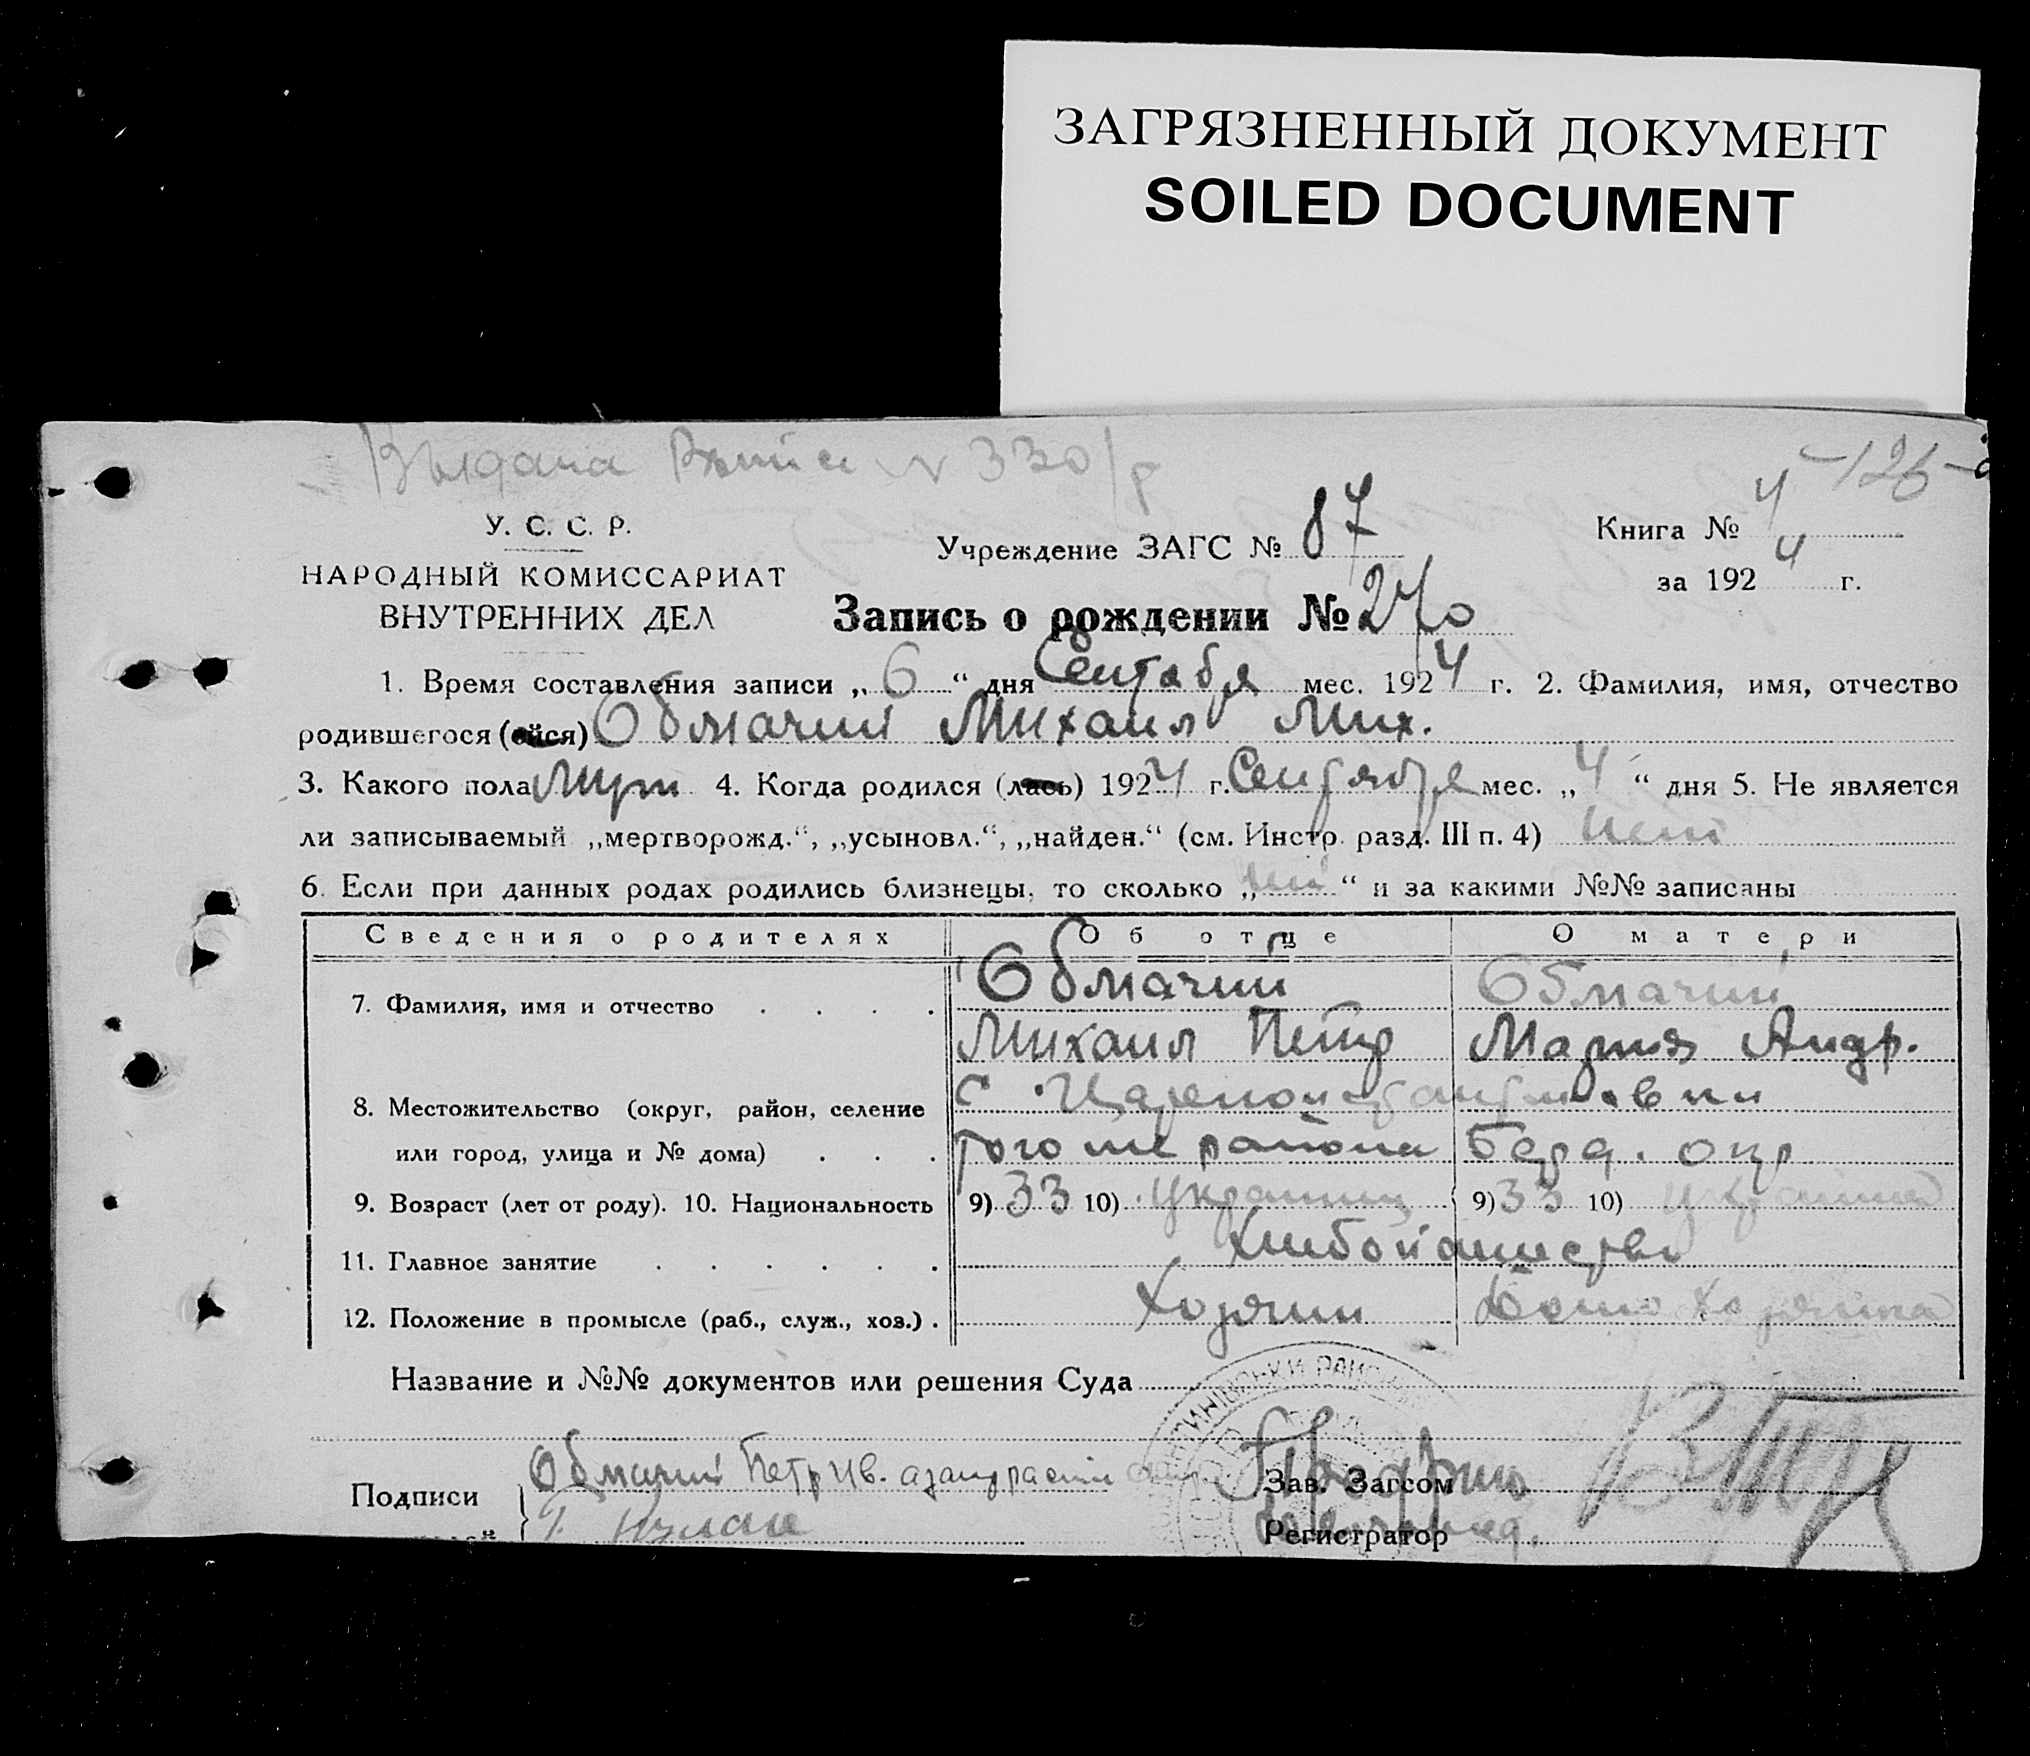 ЗАГРЯЗНЕННЫЙ ДОКУМЕНТ
SOILED DOCUMENT
Выдана № 330/р
-126-
У. С. С. Р.
НАРОДНЫЙ КОМИССАРИАТ
ВНУТРЕННИХ ДЕЛ
Учреждение ЗАГС № 87
Книга № 4
за 1924 г.
Запись о рождении № 270
1. Время составления записи „6“ дня Сентября мес. 1924 г. 2. Фамилия, имя, отчество
родившегося (ейся) Обмачий Михаил Мих.
3. Какого пола Муж 4. Когда родился (лась) 1924 г. Сентября мес. „4“ дня 5. Не является
ли записываемый „мертворожд.“, „усыновл.“, „найден.“ (см. Инстр. разд. III п. 4) Нет
6. Если при данных родах родились близнецы, то сколько „нет“ и за какими №№ записаны
Сведения о родителях Об отце О матери
7. Фамилия, имя и отчество . . . . Обмачий Обмачий
Михаил Петр Мария Андр.
8. Местожительство (округ, район, селение с. Царекон
или город, улица и № дома) . . . того же района Берд. окр
9. Возраст (лет от роду). 10. Национальность 9) 33 10) украинец 9) 33 10) украинка
11. Главное занятие . . . . . . хлебопашество
12. Положение в промысле (раб., служ., хоз.) . Хозяин хозяина
Название и №№ документов или решения Суда
Подписи Обмачий Петр Ив.
Зав. Загсом
Регистратор